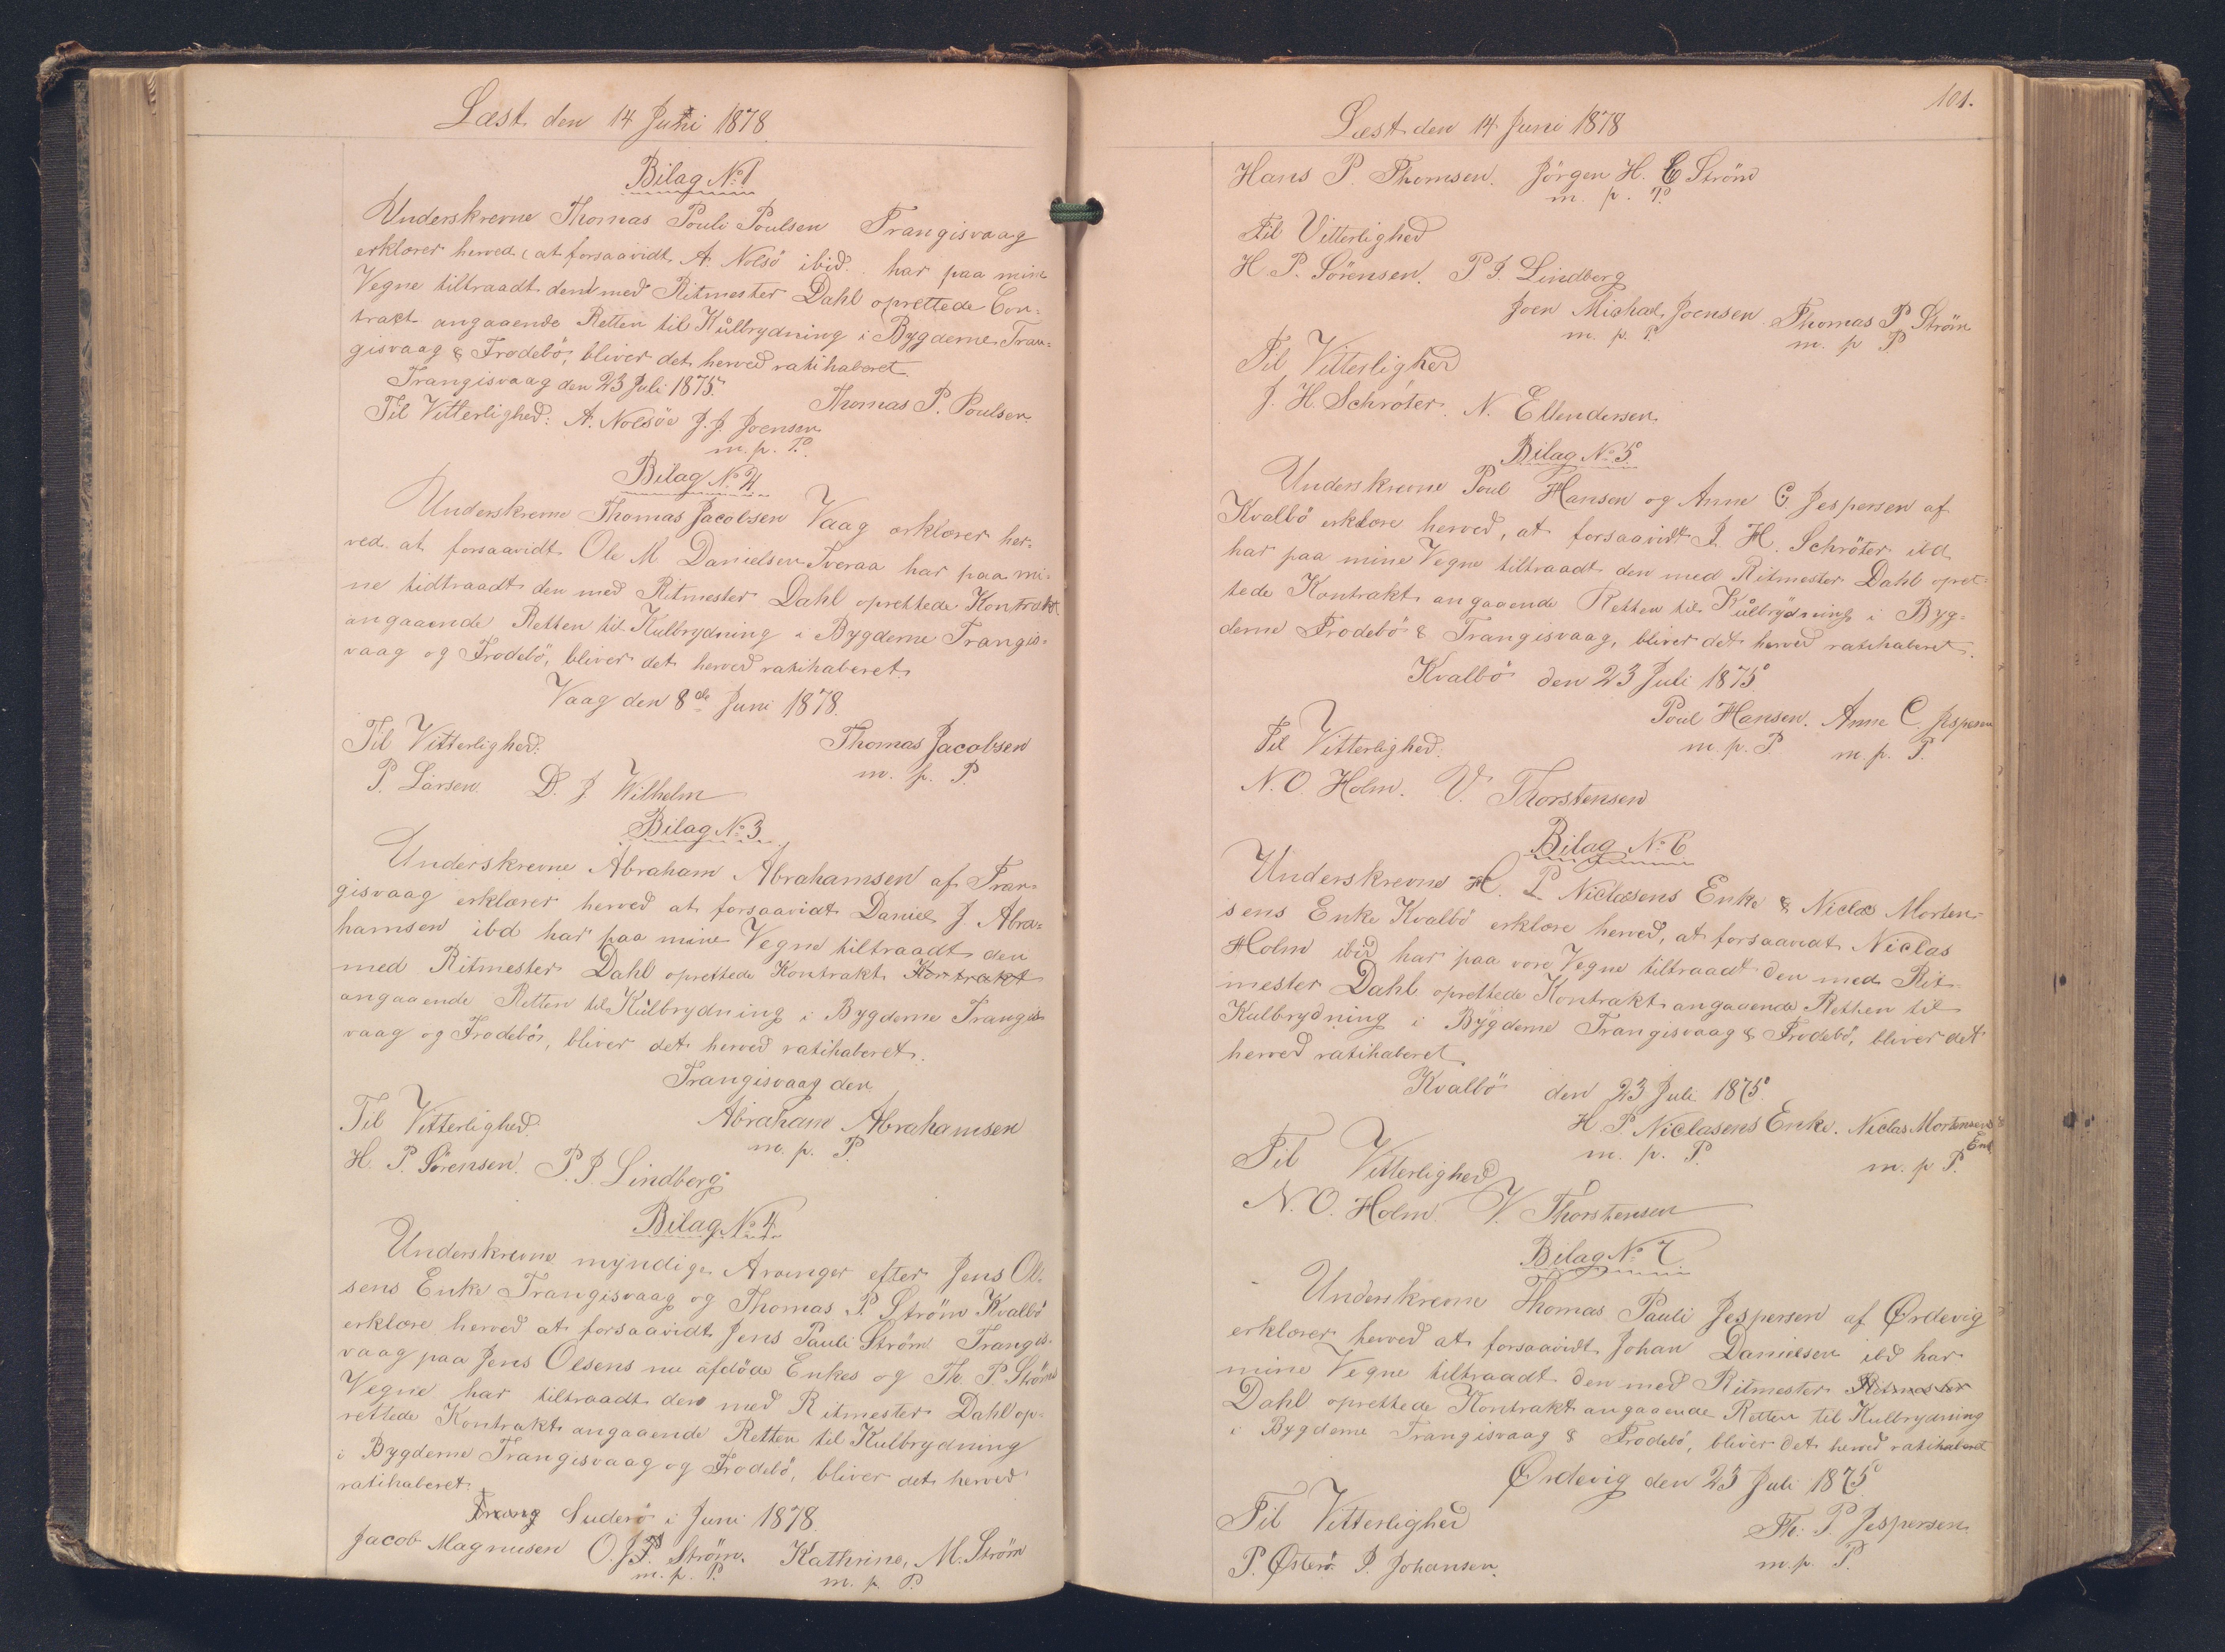 Læst den 14 Juni 1878
Bilag No 1
Underskrevne Thomas Pouli Poulsen Trangisvaag
erklærer herved, at forsaavidt A. Nolsö ibid. har paa mine
Vegne tiltraadt den med Ritmester Dahl oprettede Con-
trakt angaaende Retten til Kulbrydning i Bygderne Tran-
gisvaag & Frodebö, bliver det herved ratihaberet.
Trangisvaag den 23 Juli 1875.
Thomas P. Poulsen.
Til Vitterlighed: A. Nolsöe J. J. Joensen
m. p. P.
Bilag No 2
Underskrevne Thomas Jacobsen Vaag erklærer her-
ved at forsaavidt Ole M Danielsen Tveraa har paa mi-
ne tidtraadt den med Ritmester Dahl oprettede Kontrakt
angaaende Retten til Kulbrydning i Bygderne Trangis-
vaag og Frodebö, bliver det herved ratihaberet.
Vaag den 8de Juni 1878.
Til Vitterlighed. Thomas Jacobsen
P. Larsen. D. J. Wilhelm m. p. P
Bilag No 3
Underskrevne Abraham Abrahamsen af Tran-
gisvaag erklærer herved at forsaavidt Daniel J Abra-
hamsen ibd har paa mine Vegne tiltraadt den
med Ritmester Dahl oprettede Kontrakt Kontrakt
angaaende Retten til Kulbrydning i Bygderne Trangis
vaag og Frodebö, bliver det herved ratihaberet.
Trangisvaag den
Til Vitterlighed. Abraham Abrahamsen
m. p. P.
H. P. Sörensen. P. J. Lindberg
Bilag No 4
Underskrevne myndige Arvinger efter Jens Ol-
sens Enke Trangisvaag og Thomas P. Ström Kvalbö
erklære herved at forsaavidt Jens Pauli Ström Trangis-
vaag paa Jens Olsens nu afdöde Enkes og Th. P. Ströms
Vegne har tiltraadt den med Ritmester Dahl op-
rettede Kontrakt angaaende Retten til Kulbrydning
i Bygderne Trangisvaag og Frodebö, bliver det herved
ratihaberet.
Trang Suderö i Juni 1878.
Jacob Magnusen O. J. P. Ström. Kathrine, M. Ström
m. p. P. m. p. P.
101.
Læst den 14 Juni 1878
Hans P. Thomsen. Jörgen H. C Ström
m. p. P.
Til Vitterlighed
H. P. Sörensen. P J. Lindberg
Joen Michael Joensen Thomas P Ström
m. p. P. m. p P.
Til Vitterlighed
J. H. Schröter. N. Ellendersen.
Bilag No 5
Underskrevne Poul Hansen og Anne C. Jespersen af
Kvalbö erklære herved, at forsaavidt J. H. Schröter ibd
har paa mine Vegne tiltraadt den med Ritmester Dahl opret-
tede Kontrakt angaaende Retten til Kulbrydning i Byg-
derne Frodebö & Trangisvaag, bliver det herved ratihaberet.
Kvalbö den 23 Juli 1875
Poul Hansen. Anne C. Jespersen
Til Vitterlighed. m. p. P. m. p. P.
N. O. Holm. V. Thorstensen
Bilag No 6
Underskrevne H. P Niclasens Enke & Niclas Morten-
sens Enke Kvalbö erklære herved, at forsaavidt Niclas
Holm ibid har paa vore Vegne tiltraadt den med Rit-
mester Dahl oprettede Kontrakt angaaende Retten til
Kulbrydning i Bygderne Trangisvaag & Frodebö, bliver det
herved ratihaberet
Kvalbö den 23 Juli 1875
H. P Niclasens Enke. Niclas Mortensens
Enke
m. p. P. m. p P.
Til Vitterlighed
N. O. Holm. V. Thorstensen
Bilag No 7
Underskrevne Thomas Pauli Jespersen af Ørdevig
erklærer herved at forsaavidt Johan Danielsen ibd har
mine Vegne tiltraadt den med Ritmester Ritmester
Dahl oprettede Kontrakt angaaende Retten til Kulbrydning
i Bygderne Trangisvaag & Frodebö, bliver det herved ratihaberet
Ørdevig den 23 Juli 1875.
Til Vitterlighed Th. P. Jespersen
P. Østerö. J. Johansen. m. p. P.